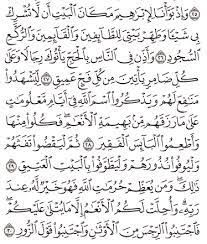 ٢٥ وَإِذْ بَوَّأْنَا لِإِبْرَٰهِيمَ مَكَانَ ٱلْبَيْتِ أَن لَّا تُشْرِكْ
بِى شَيْـًٔا وَطَهِّرْ بَيْتِىَ لِلطَّآئِفِينَ وَٱلْقَآئِمِينَ وَٱلرُّكَّعِ
ٱلسُّجُودِ ٢٦ وَأَذِّن فِى ٱلنَّاسِ بِٱلْحَجِّ يَأْتُوكَ رِجَالًا وَعَلَىٰ
كُلِّ ضَامِرٍ يَأْتِينَ مِن كُلِّ فَجٍّ عَمِيقٍ ٢٧ لِّيَشْهَدُوا۟
مَنَـٰفِعَ لَهُمْ وَيَذْكُرُوا۟ ٱسْمَ ٱللَّهِ فِىٓ أَيَّامٍ مَّعْلُومَـٰتٍ
عَلَىٰ مَا رَزَقَهُم مِّنۢ بَهِيمَةِ ٱلْأَنْعَـٰمِ فَكُلُوا۟ مِنْهَا
وَأَطْعِمُوا۟ ٱلْبَآئِسَ ٱلْفَقِيرَ ٢٨ ثُمَّ لْيَقْضُوا۟ تَفَثَهُمْ
وَلْيُوفُوا۟ نُذُورَهُمْ وَلْيَطَّوَّفُوا۟ بِٱلْبَيْتِ ٱلْعَتِيقِ ٢٩
ذَٰلِكَ وَمَن يُعَظِّمْ حُرُمَـٰتِ ٱللَّهِ فَهُوَ خَيْرٌ لَّهُۥ عِندَ
رَبِّهِۦ وَأُحِلَّتْ لَكُمُ ٱلْأَنْعَـٰمُ إِلَّا مَا يُتْلَىٰ عَلَيْكُمْ
فَٱجْتَنِبُوا۟ ٱلرِّجْسَ مِنَ ٱلْأَوْثَـٰنِ وَٱجْتَنِبُوا۟ قَوْلَ ٱلزُّورِ ٣٠